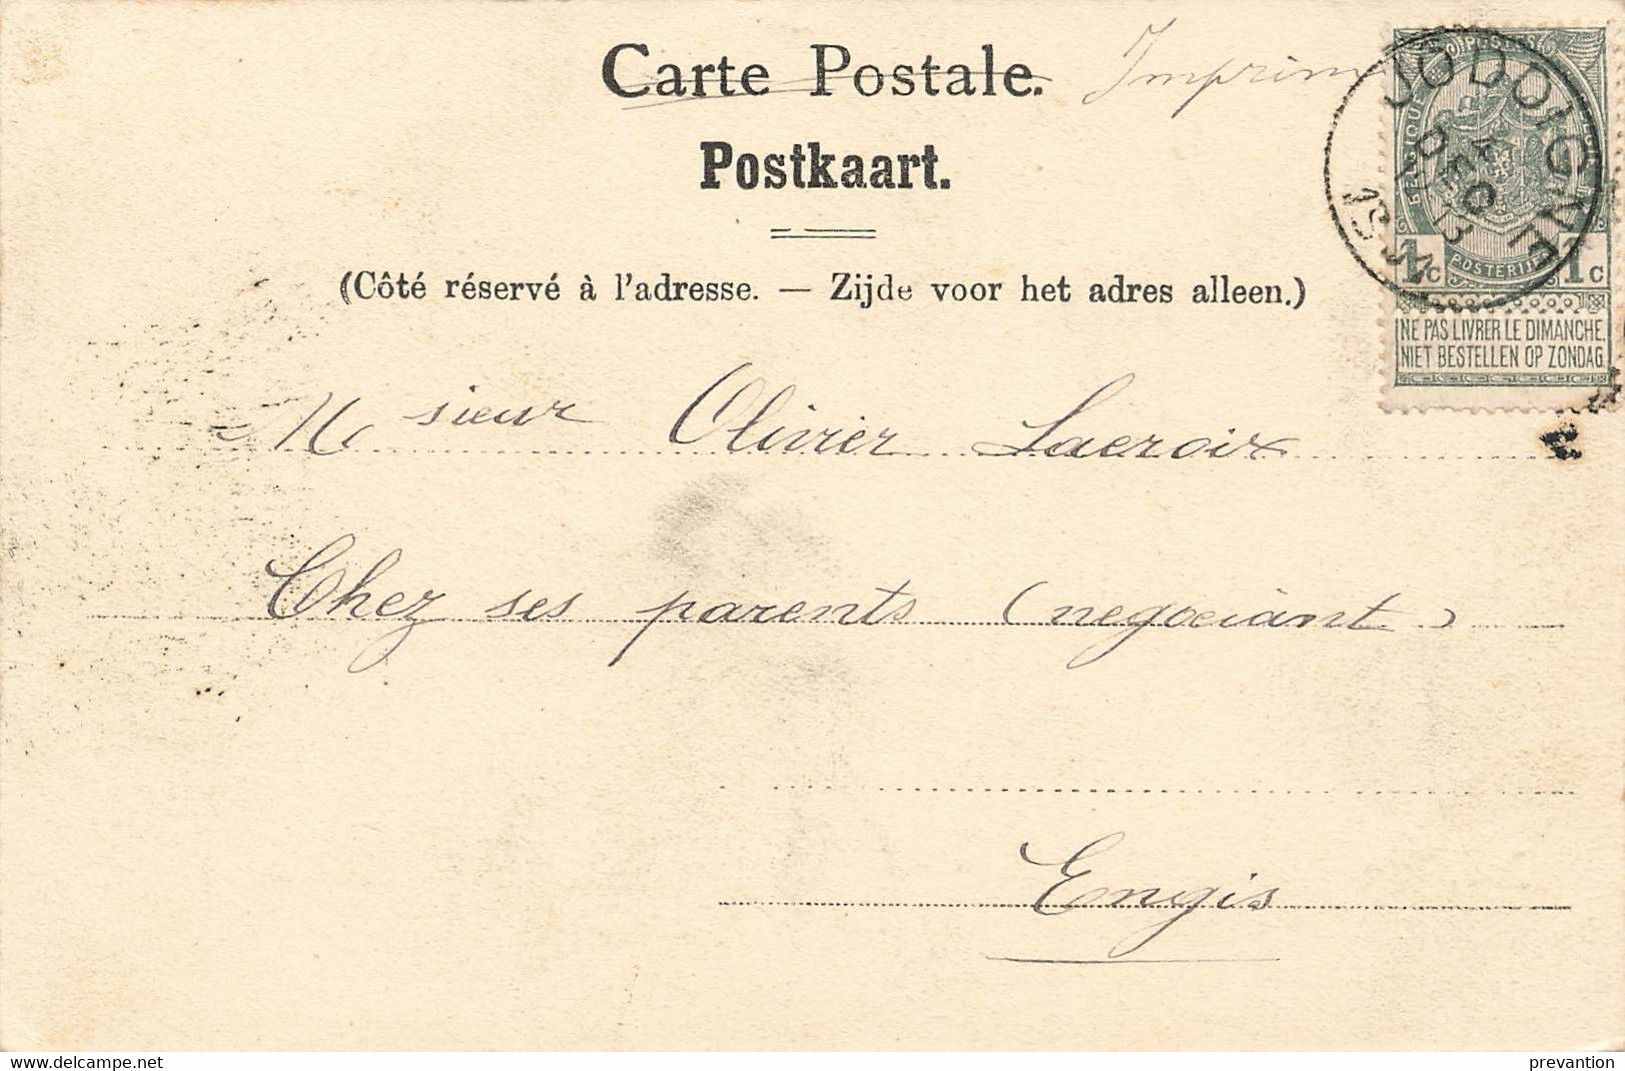 Carte Postale.
Postkaart.
(Côté réservé à l'adresse. — Zijde voor het adres alleen.)
JODOIGNE
4
DEC
13
POSTES
BELGIQUE
POSTERIJEN
1c 1c
NE PAS LIVRER LE DIMANCHE.
NIET BESTELLEN OP ZONDAG.
Msieur Olivier Lacroix
Chez ses parents (negociant)
Engis
delcampe.net
prevantion